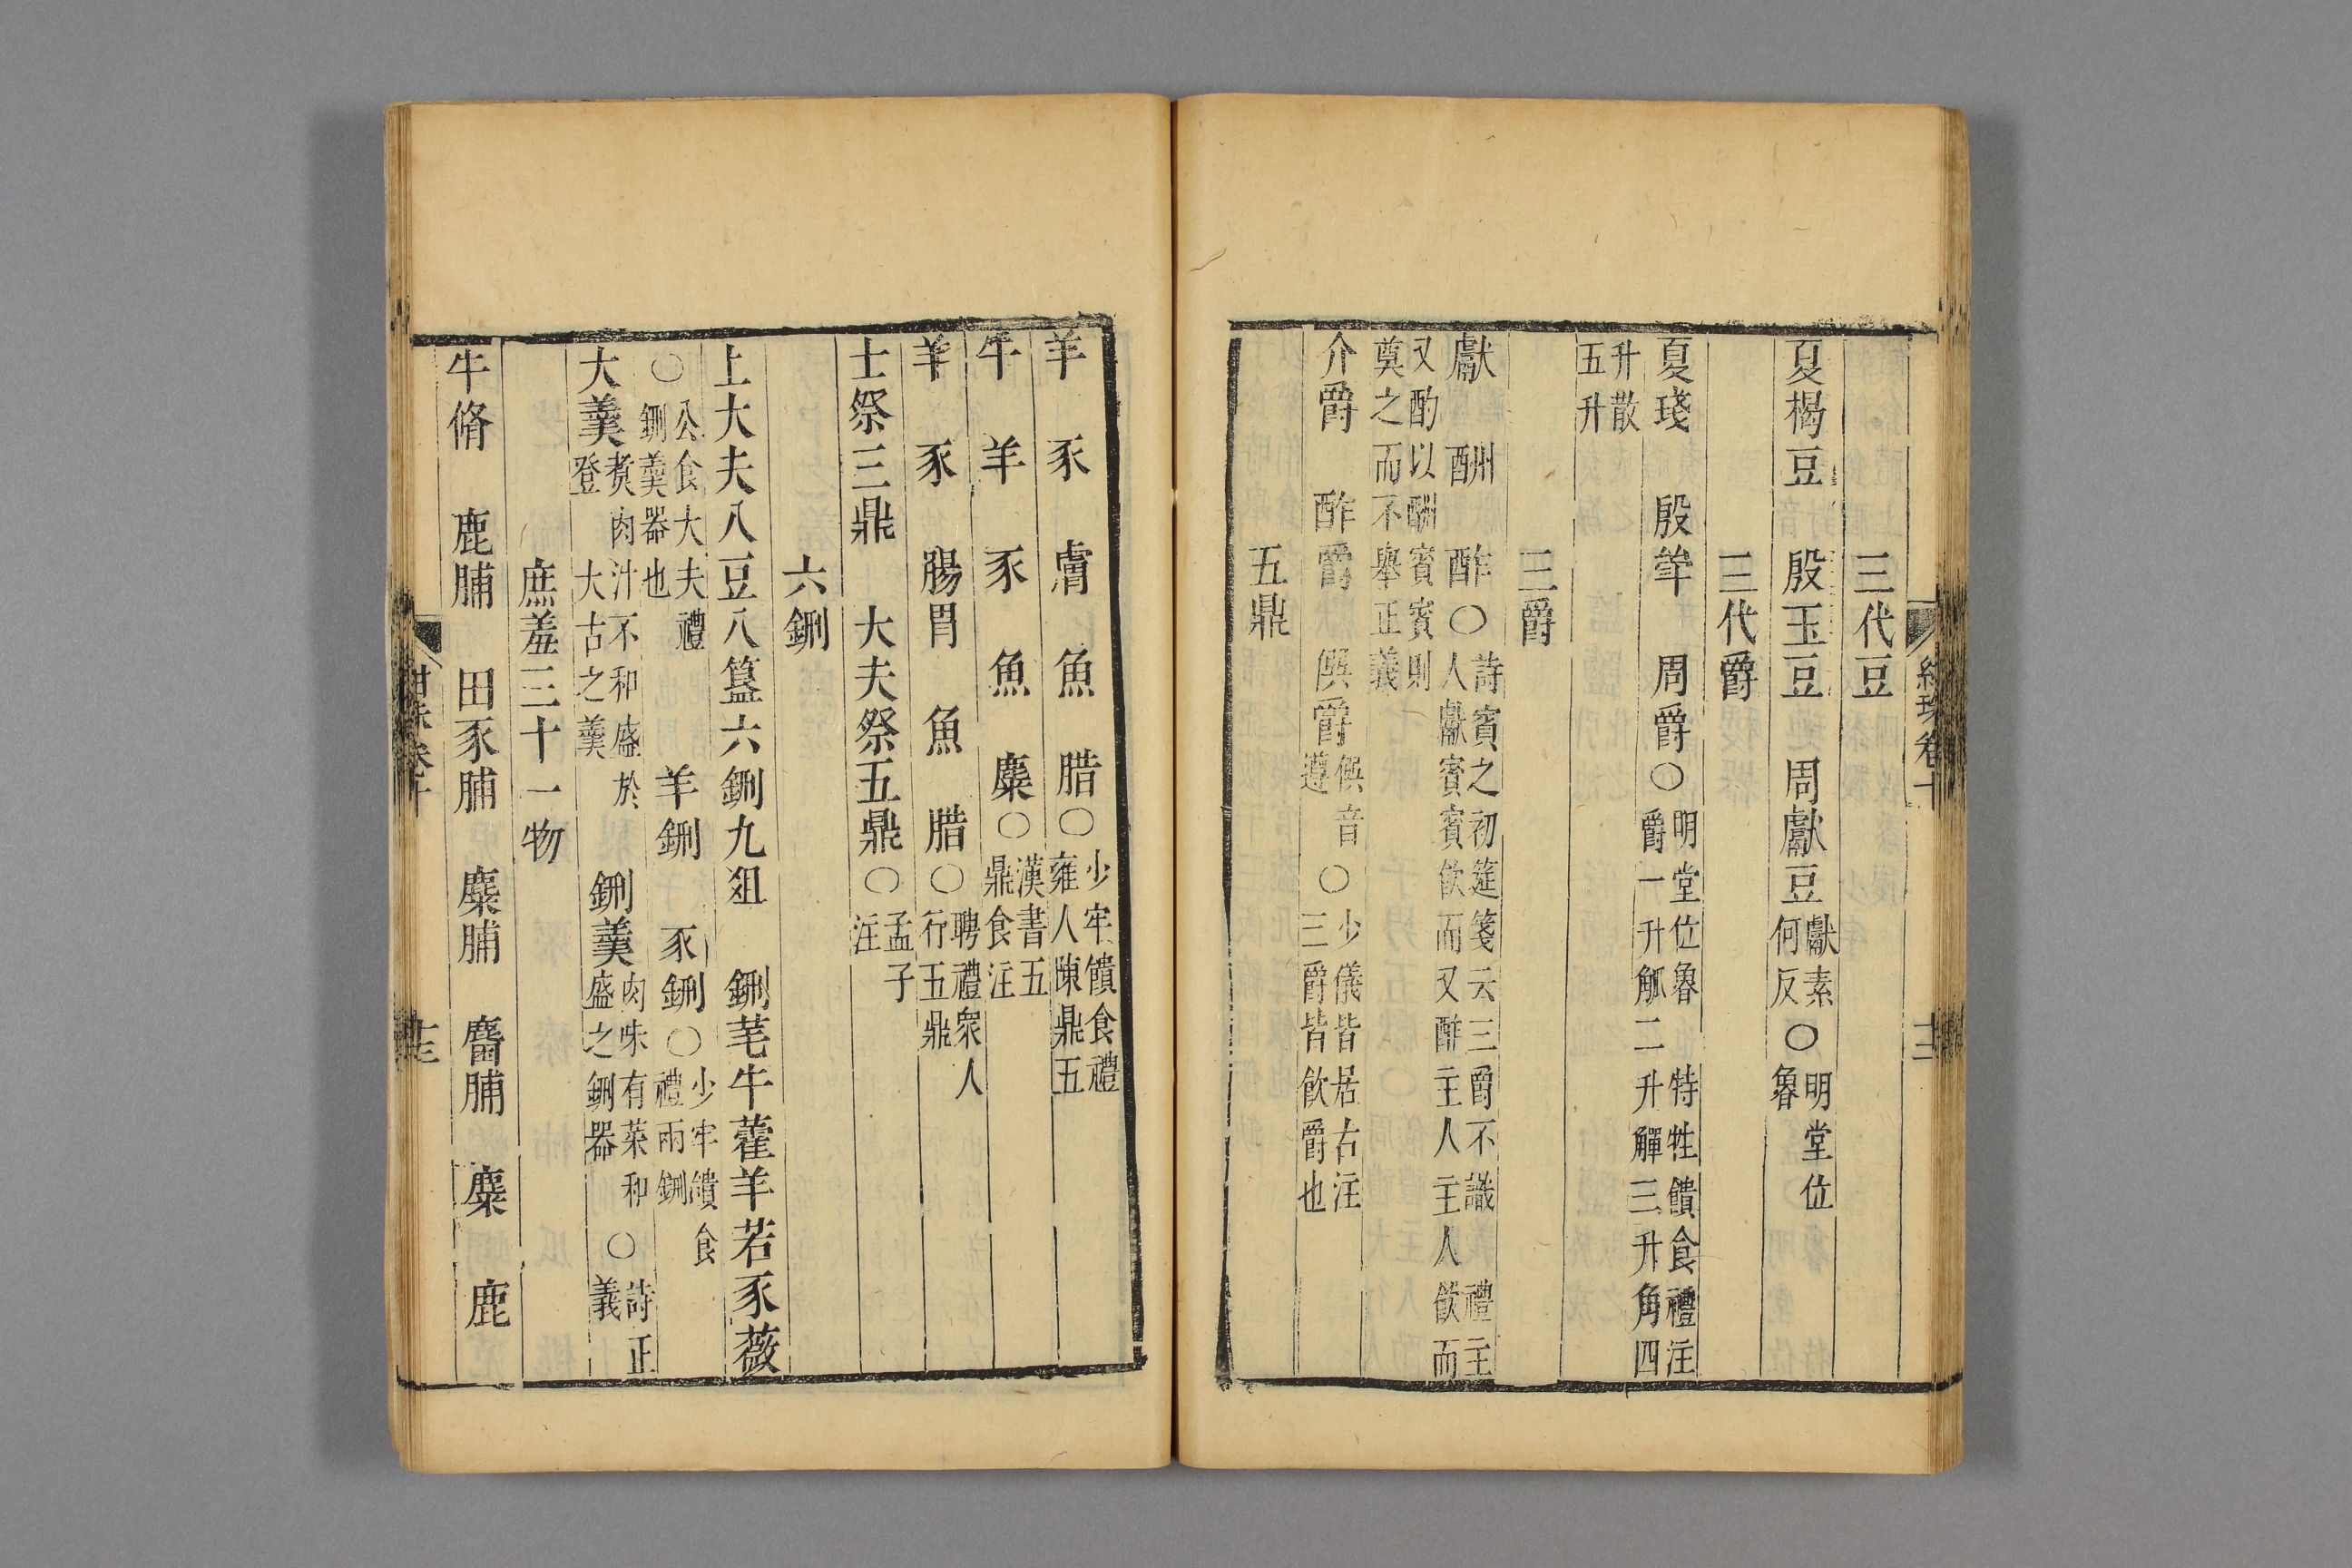 三代豆
夏楬豆　殷玉豆　周獻豆獻素何反○明堂位魯
三代爵
夏琖　殷斝　周爵○明堂位魯爵一升觚二升觶三升角四特牲饋食禮注
升散五升
三爵
獻　酬　酢○詩賓之初筵箋云三爵不識禮主人獻賓賓飲而又酢主人主人飲而
又酌以酬賓賓則奠之而不舉正義
介爵　酢爵　僎爵僎音遵○少儀皆居右注三爵皆飲爵也
五鼎
羊　豕　膚　魚　腊○少牢饋食禮雍人陳鼎五
牛　羊　豕　魚　麋○漢書五鼎食注
羊　豕　腸胃　魚　腊○聘禮衆人行五鼎
士祭三鼎　大夫祭五鼎○孟子注
六鉶
上大夫八豆八簋六鉶九俎　鉶芼牛藿羊若豕薇
○公食大夫禮鉶羹器也　羊鉶　豕鉶○少牢饋食禮兩鉶
大羹煑肉汁不和盛於登大古之羹　鉶羹肉味有菜和盛之鉶器○詩正義
庶羞三十一物
牛脩　鹿脯　田豕脯　麋脯　麕脯　麋　鹿